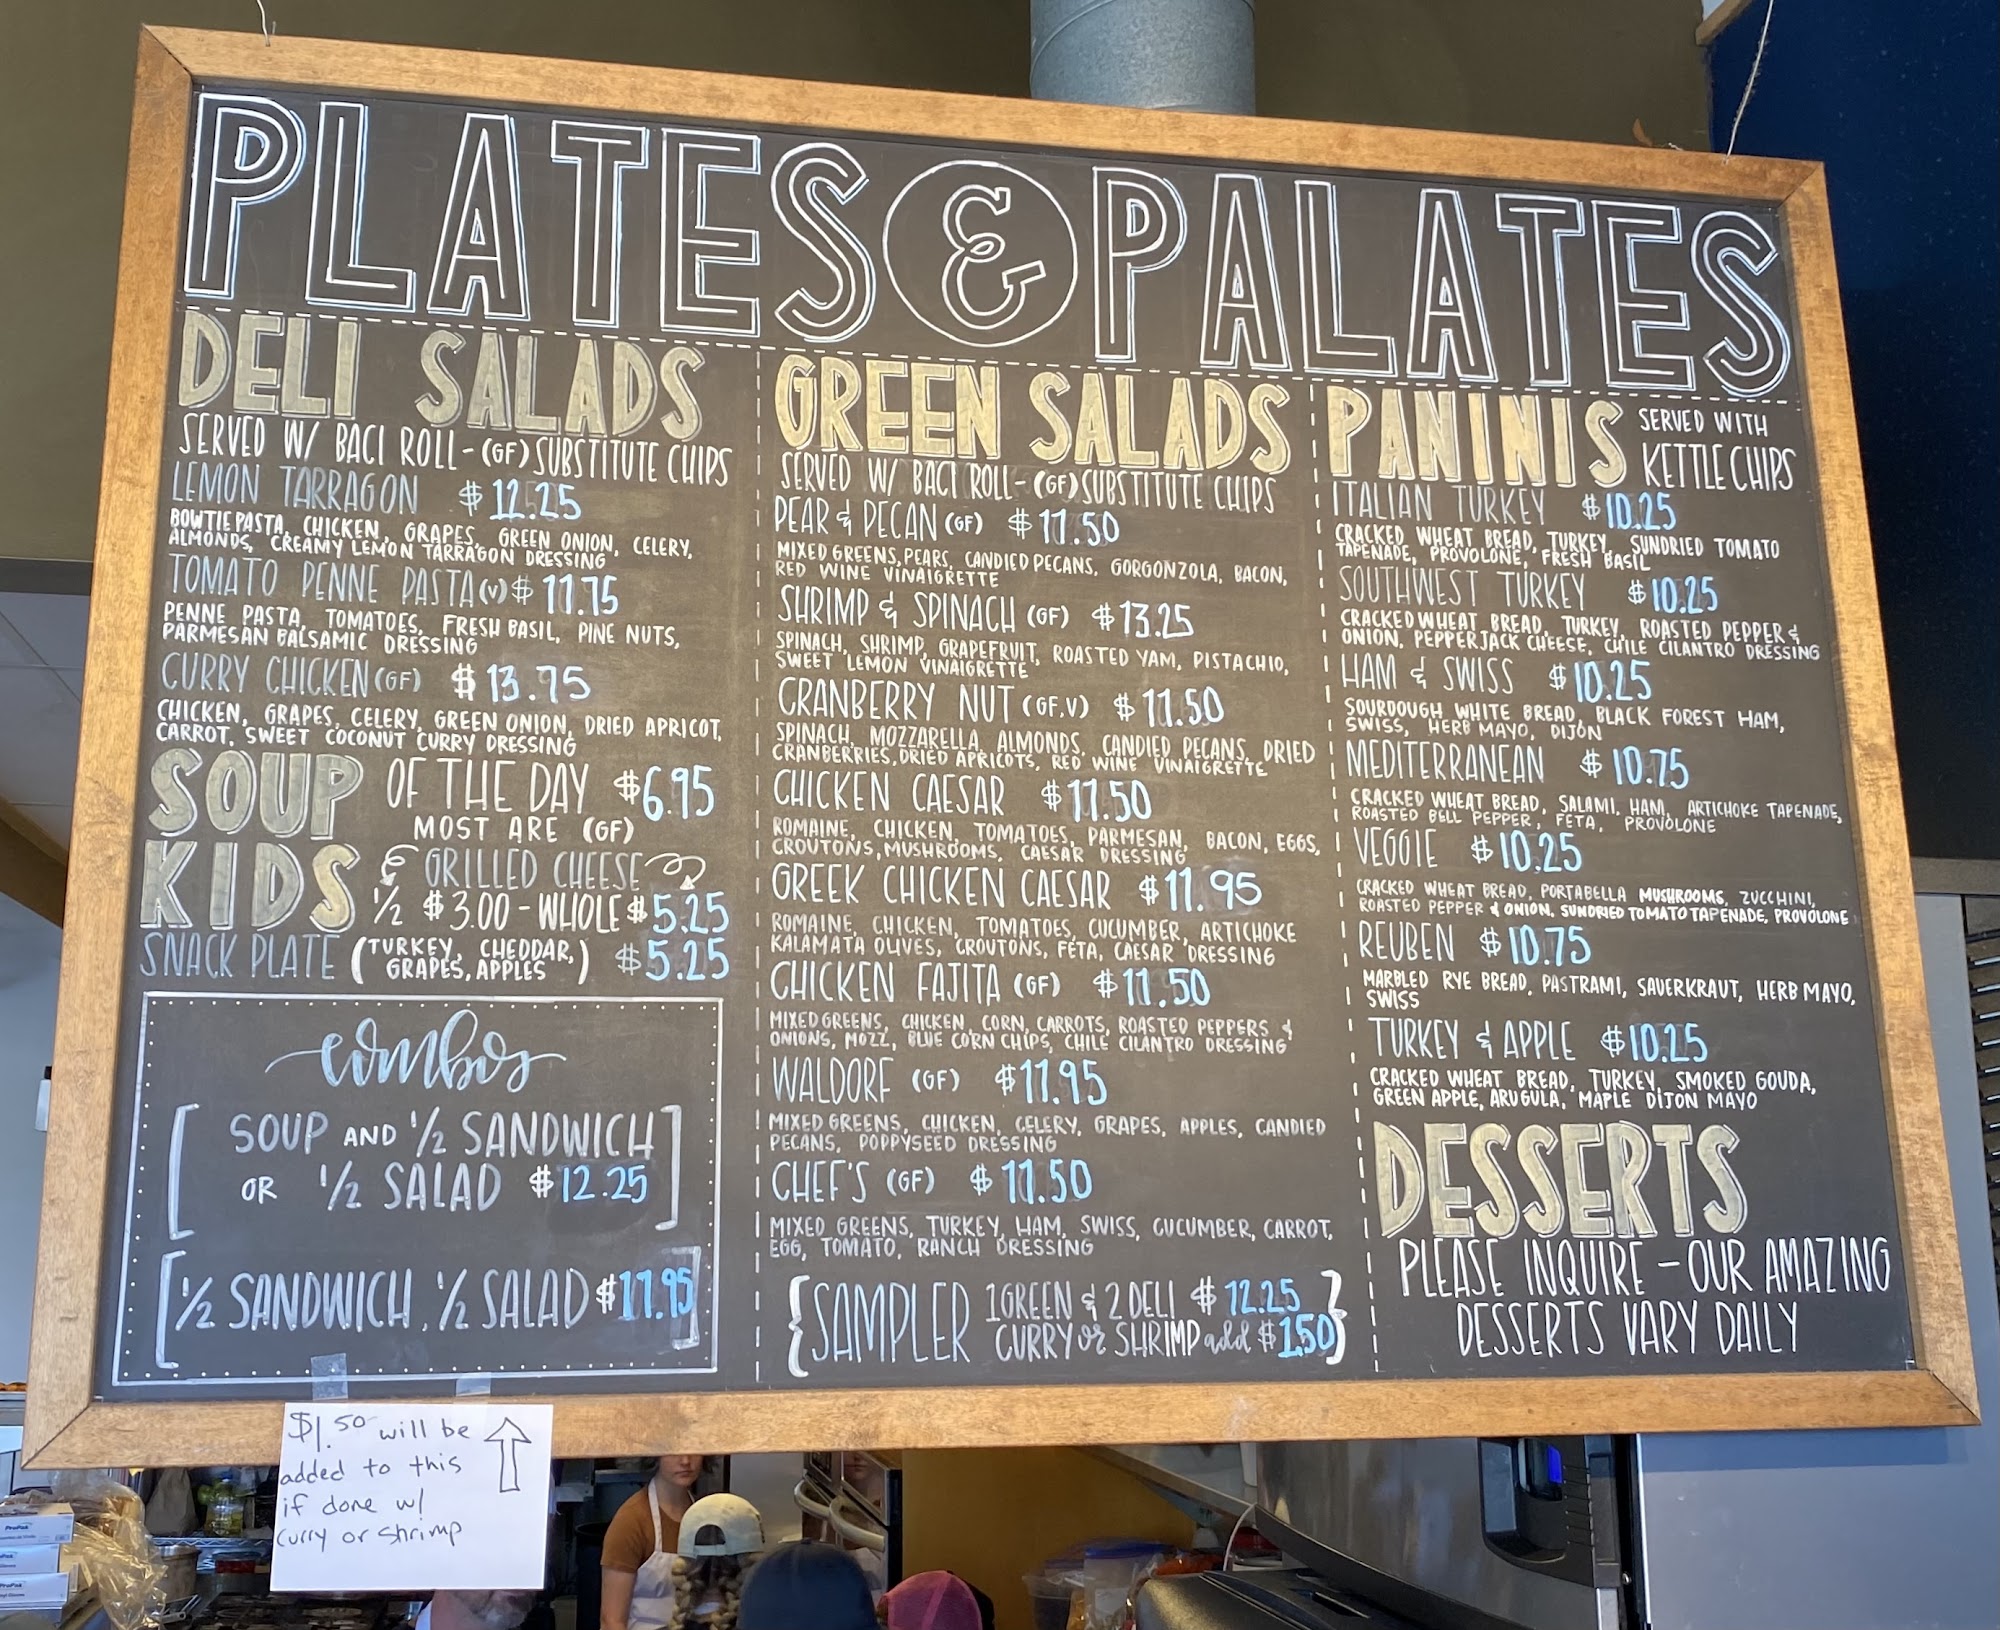 PLATES & PALATES
DELI SALADS
SERVED W/ BACI ROLL-(GF) SUBSTITUTE CHIPS
LEMON TARRAGON $12.25
BOWTIE PASTA, CHICKEN, GRAPES, GREEN ONION, CELERY,
ALMONDS, CREAMY LEMON TARRAGON DRESSING
TOMATO PENNE PASTA (V) $11.75
PENNE PASTA, TOMATOES, FRESH BASIL, PINE NUTS,
PARMESAN BALSAMIC DRESSING
CURRY CHICKEN (GF) $13.75
CHICKEN, GRAPES, CELERY, GREEN ONION, DRIED APRICOT,
CARROT, SWEET COCONUT CURRY DRESSING
SOUP OF THE DAY $6.95
MOST ARE (GF)
KIDS GRILLED CHEESE
1/2 $3.00 - WHOLE $5.25
SNACK PLATE (TURKEY, CHEDDAR, GRAPES, APPLES) $5.25
combos
[SOUP AND 1/2 SANDWICH
OR 1/2 SALAD $12.25]
[1/2 SANDWICH, 1/2 SALAD $11.95]
GREEN SALADS
SERVED W/ BACI ROLL-(GF) SUBSTITUTE CHIPS
PEAR & PECAN (GF) $11.50
MIXED GREENS, PEARS, CANDIED PECANS, GORGONZOLA, BACON,
RED WINE VINAIGRETTE
SHRIMP & SPINACH (GF) $13.25
SPINACH, SHRIMP, GRAPEFRUIT, ROASTED YAM, PISTACHIO,
SWEET LEMON VINAIGRETTE
CRANBERRY NUT (GF,V) $11.50
SPINACH, MOZZARELLA, ALMONDS, CANDIED PECANS, DRIED
CRANBERRIES, DRIED APRICOTS, RED WINE VINAIGRETTE
CHICKEN CAESAR $11.50
ROMAINE, CHICKEN, TOMATOES, PARMESAN, BACON, EGGS,
CROUTONS, MUSHROOMS, CAESAR DRESSING
GREEK CHICKEN CAESAR $11.95
ROMAINE, CHICKEN, TOMATOES, CUCUMBER, ARTICHOKE
KALAMATA OLIVES, CROUTONS, FETA, CAESAR DRESSING
CHICKEN FAJITA (GF) $11.50
MIXED GREENS, CHICKEN, CORN, CARROTS, ROASTED PEPPERS &
ONIONS, MOZZ, BLUE CORN CHIPS, CHILE CILANTRO DRESSING
WALDORF (GF) $11.95
MIXED GREENS, CHICKEN, CELERY, GRAPES, APPLES, CANDIED
PECANS, POPPYSEED DRESSING
CHEF'S (GF) $11.50
MIXED GREENS, TURKEY, HAM, SWISS, CUCUMBER, CARROT,
EGG, TOMATO, RANCH DRESSING
{SAMPLER 1 GREEN & 2 DELI $12.25
CURRY or SHRIMP add $1.50}
PANINIS SERVED WITH
KETTLE CHIPS
ITALIAN TURKEY $10.25
CRACKED WHEAT BREAD, TURKEY, SUNDRIED TOMATO
TAPENADE, PROVOLONE, FRESH BASIL
SOUTHWEST TURKEY $10.25
CRACKED WHEAT BREAD, TURKEY, ROASTED PEPPER &
ONION, PEPPERJACK CHEESE, CHILE CILANTRO DRESSING
HAM & SWISS $10.25
SOURDOUGH WHITE BREAD, BLACK FOREST HAM,
SWISS, HERB MAYO, DIJON
MEDITERRANEAN $10.75
CRACKED WHEAT BREAD, SALAMI, HAM, ARTICHOKE TAPENADE,
ROASTED BELL PEPPER, FETA, PROVOLONE
VEGGIE $10.25
CRACKED WHEAT BREAD, PORTABELLA MUSHROOMS, ZUCCHINI,
ROASTED PEPPER & ONION, SUNDRIED TOMATO TAPENADE, PROVOLONE
REUBEN $10.75
MARBLED RYE BREAD, PASTRAMI, SAUERKRAUT, HERB MAYO,
SWISS
TURKEY & APPLE $10.25
CRACKED WHEAT BREAD, TURKEY, SMOKED GOUDA,
GREEN APPLE, ARUGULA, MAPLE DIJON MAYO
DESSERTS
PLEASE INQUIRE - OUR AMAZING
DESSERTS VARY DAILY
$1.50 will be
added to this
if done w/
curry or shrimp
ProPak
ProPak